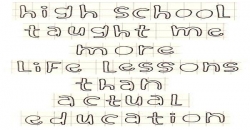 high school
taught me
more
life lessons
than
actual
education